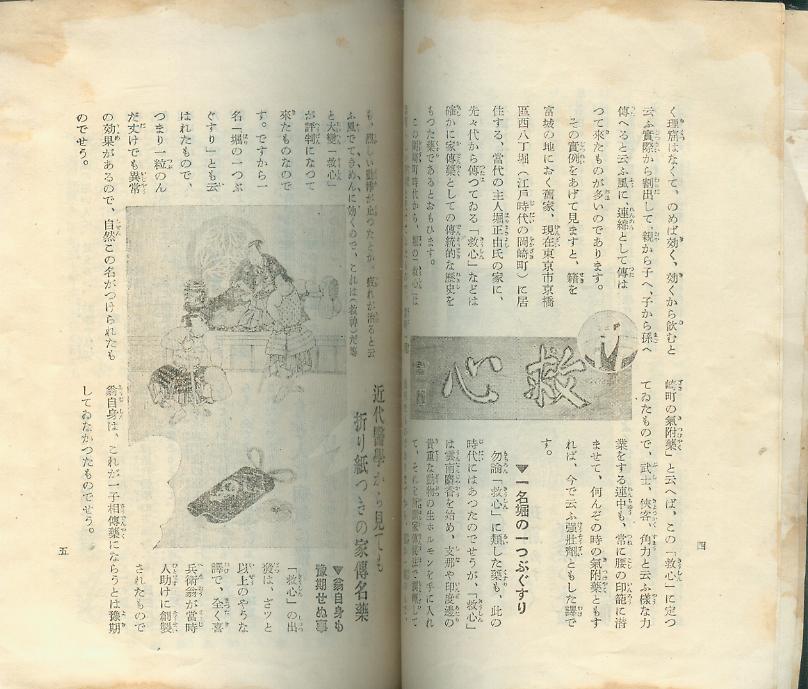 く理窟はなくて、のめば効く、効くから飲むと
云ふ實際から割出して、親から子へ、子から孫へ
傳へると云ふ風に、連綿として傳は
つて來たものが多いのであります。
その實例をあげて見ますと、籍を
富城の地におく舊家、現在東京市京橋
區西八丁堀（江戸時代の岡崎町）に居
住する、當代の主人堀正由氏の家に、
先々代から傳つてゐる「救心」などは
確かに家傳藥としての傳統的な歷史を
もつた藥であるとおもひます。
この岡崎町時代から、堀の「救心」は
救心
崎町の氣附藥」と云へば、この「救心」に定つ
てゐたもので、武士、俠客、角力と云ふ樣な力
業をする連中も、常に腰の印籠に潜
ませて、何んぞの時の氣附藥ともす
れば、今で云ふ强壯劑ともした譯で
す。
▼一名堀の一つぶぐすり
勿論「救心」に類した藥も、此の
時代にはあつたのでせうが、「救心」
は雲南麝香を始め、支那や印度邊の
貴重な動物の生ホルモンを手に入れ
て、それを
四
も、烈しい動悸が止つたとか、疲れが治ると云
ふ風でてきめんに効くので、これは（救神）だ等
と大變「救心」
が評判になつて
來たものなので
す。ですから一
名「堀の一つぶ
ぐすり」とも云
はれたもので、
つまり一粒のん
だ丈けでも異常
の効果があるので、自然この名がつけられたも
のでせう。
近代醫學から見ても
折り紙つきの家傳名藥
▼翁自身も
豫期せぬ事
「救心」の出
發は、ざツと
以上のやうな
譯で、全く喜
兵衞翁が當時
人助けに創製
されたもので
翁自身は、これが一子相傳藥にならうとは豫期
してゐなかつたものでせう。
五